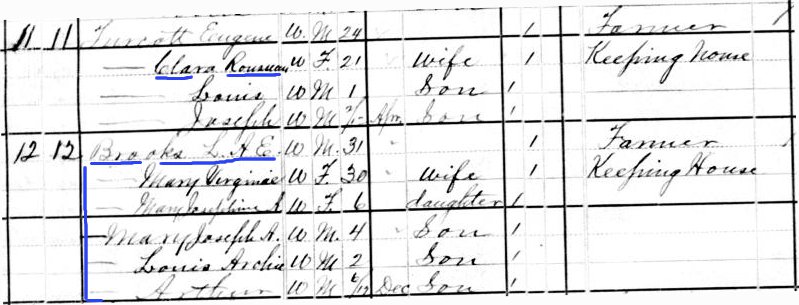 11 11 Turcott Eugene W. M. 24 1 Farmer
— Clara Rousseau W F. 21 Wife 1 Keeping House
— Louis W M 1 Son 1
— Joseph W M 2/12 Apr Son 1
12 12 Brooks L. A E. W M. 31 1 Farmer
— Mary Virginie W F. 30 Wife 1 Keeping House
— Mary Josephine A W F. 6 daughter 1
— Mary Joseph A. W M. 4 Son 1
— Louis Archie W M 2 Son 1
— Arthur W M 6/12 Dec Son 1